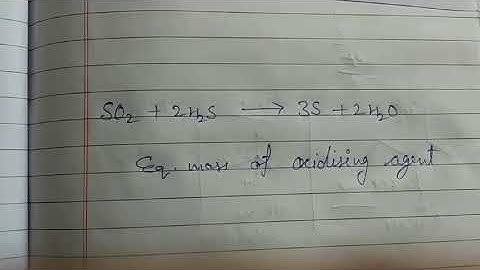 SO₂ + 2H₂S → 3S + 2H₂O
Eq. mass of oxidising agent